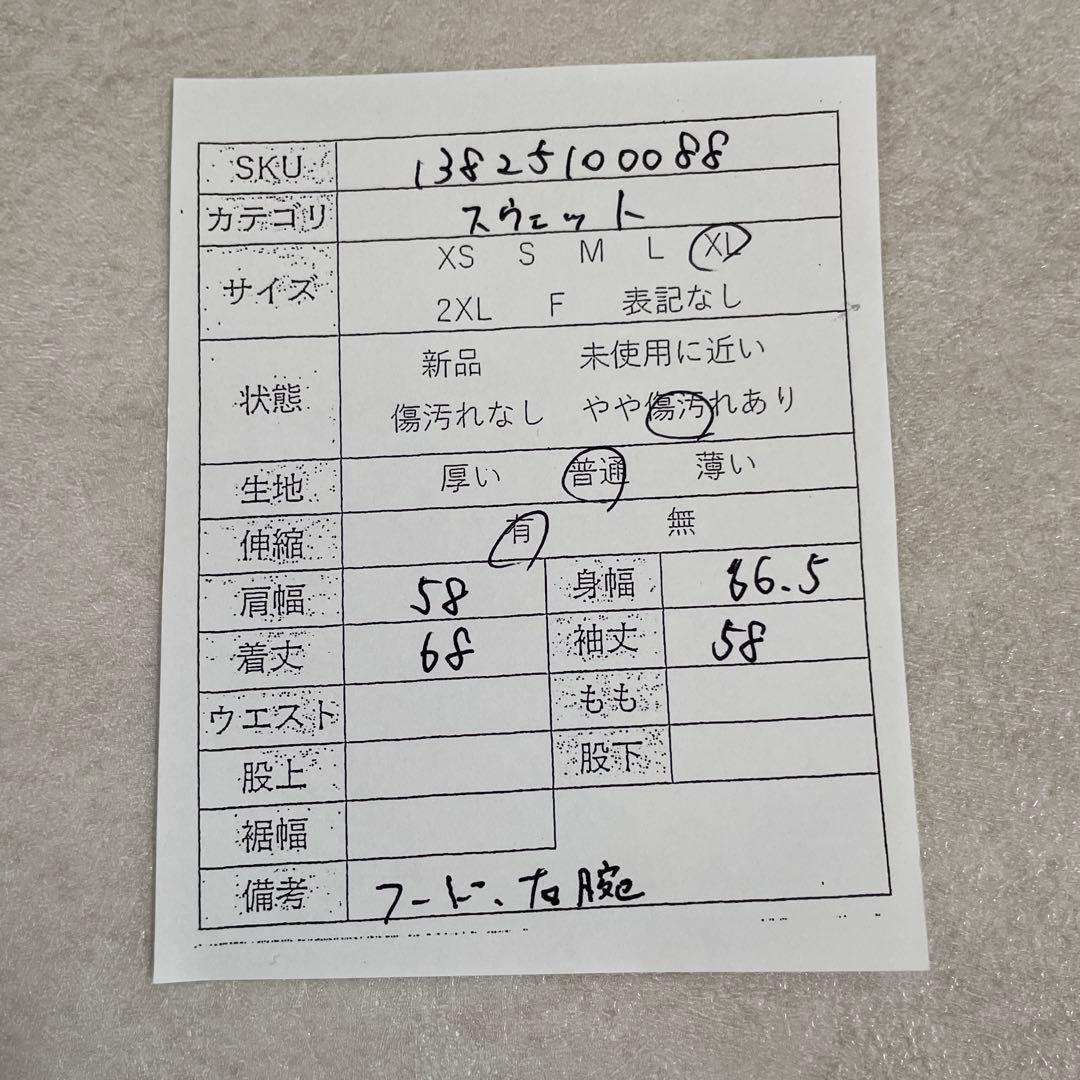 SKU 13825100088
カテゴリ スウェット
サイズ XS S M L XL
2XL F 表記なし
状態 新品 未使用に近い
傷汚れなし やや傷汚れあり
生地 厚い 普通 薄い
伸縮 有 無
肩幅 58 身幅 66.5
着丈 68 袖丈 58
ウエスト もも
股上 股下
裾幅
備考 フード、右腕